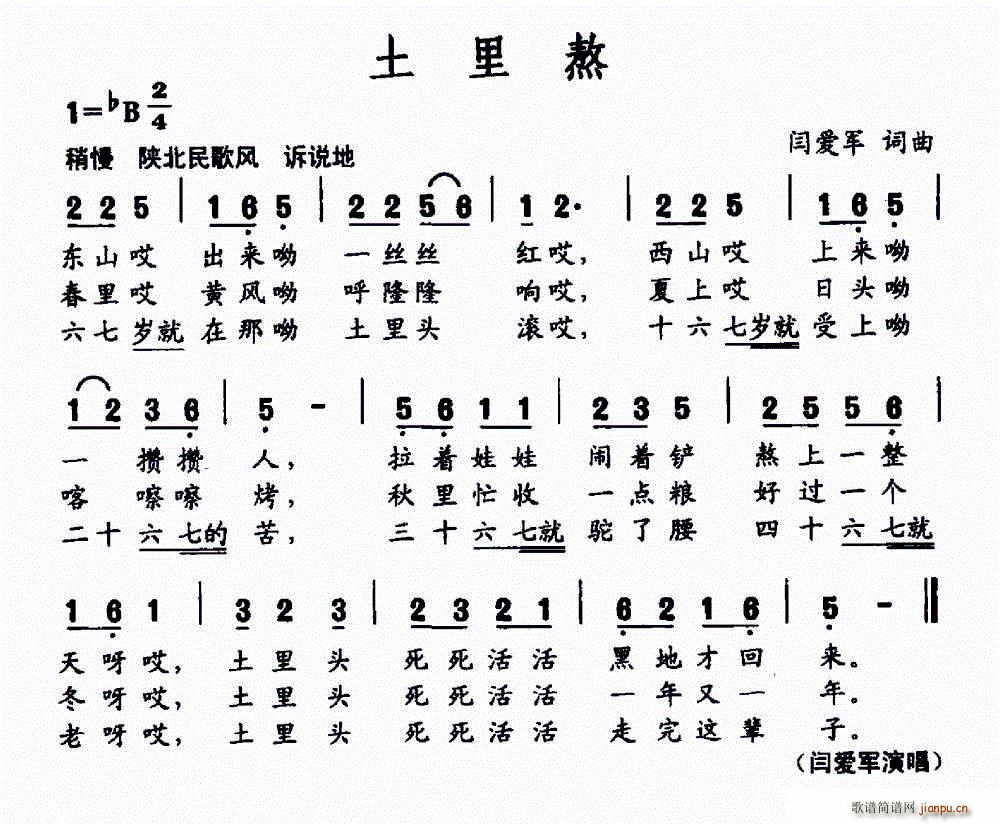 土里熬
1=♭B 2/4
稍慢 陕北民歌风 诉说地
闫爱军 词曲
2 2 5 | 1 6 5 | 2 2 5 6 | 1 2· | 2 2 5 | 1 6 5 |
东山哎 出来呦 一丝丝 红哎，西山哎 上来呦
春里哎 黄风呦 呼隆隆 响哎，夏上哎 日头呦
六七岁就在那呦 土里头 滚哎，十六七岁就受上呦
1 2 3 6 | 5 - | 5 6 1 1 | 2 3 5 | 2 5 5 6 |
一 攒攒 人，拉着娃娃 闹着铲 熬上一整
喀 嚓嚓 烤，秋里忙收 一点粮 好过一个
二十六七的 苦，三十六七就 驼了腰 四十六七就
1 6 1 | 3 2 3 | 2 3 2 1 | 6 2 1 6 | 5 - ‖
天呀哎，土里头 死死活活 黑地才回 来。
冬呀哎，土里头 死死活活 一年又一 年。
老呀哎，土里头 死死活活 走完这辈 子。
（闫爱军演唱）
歌谱简谱网 jianpu.cn